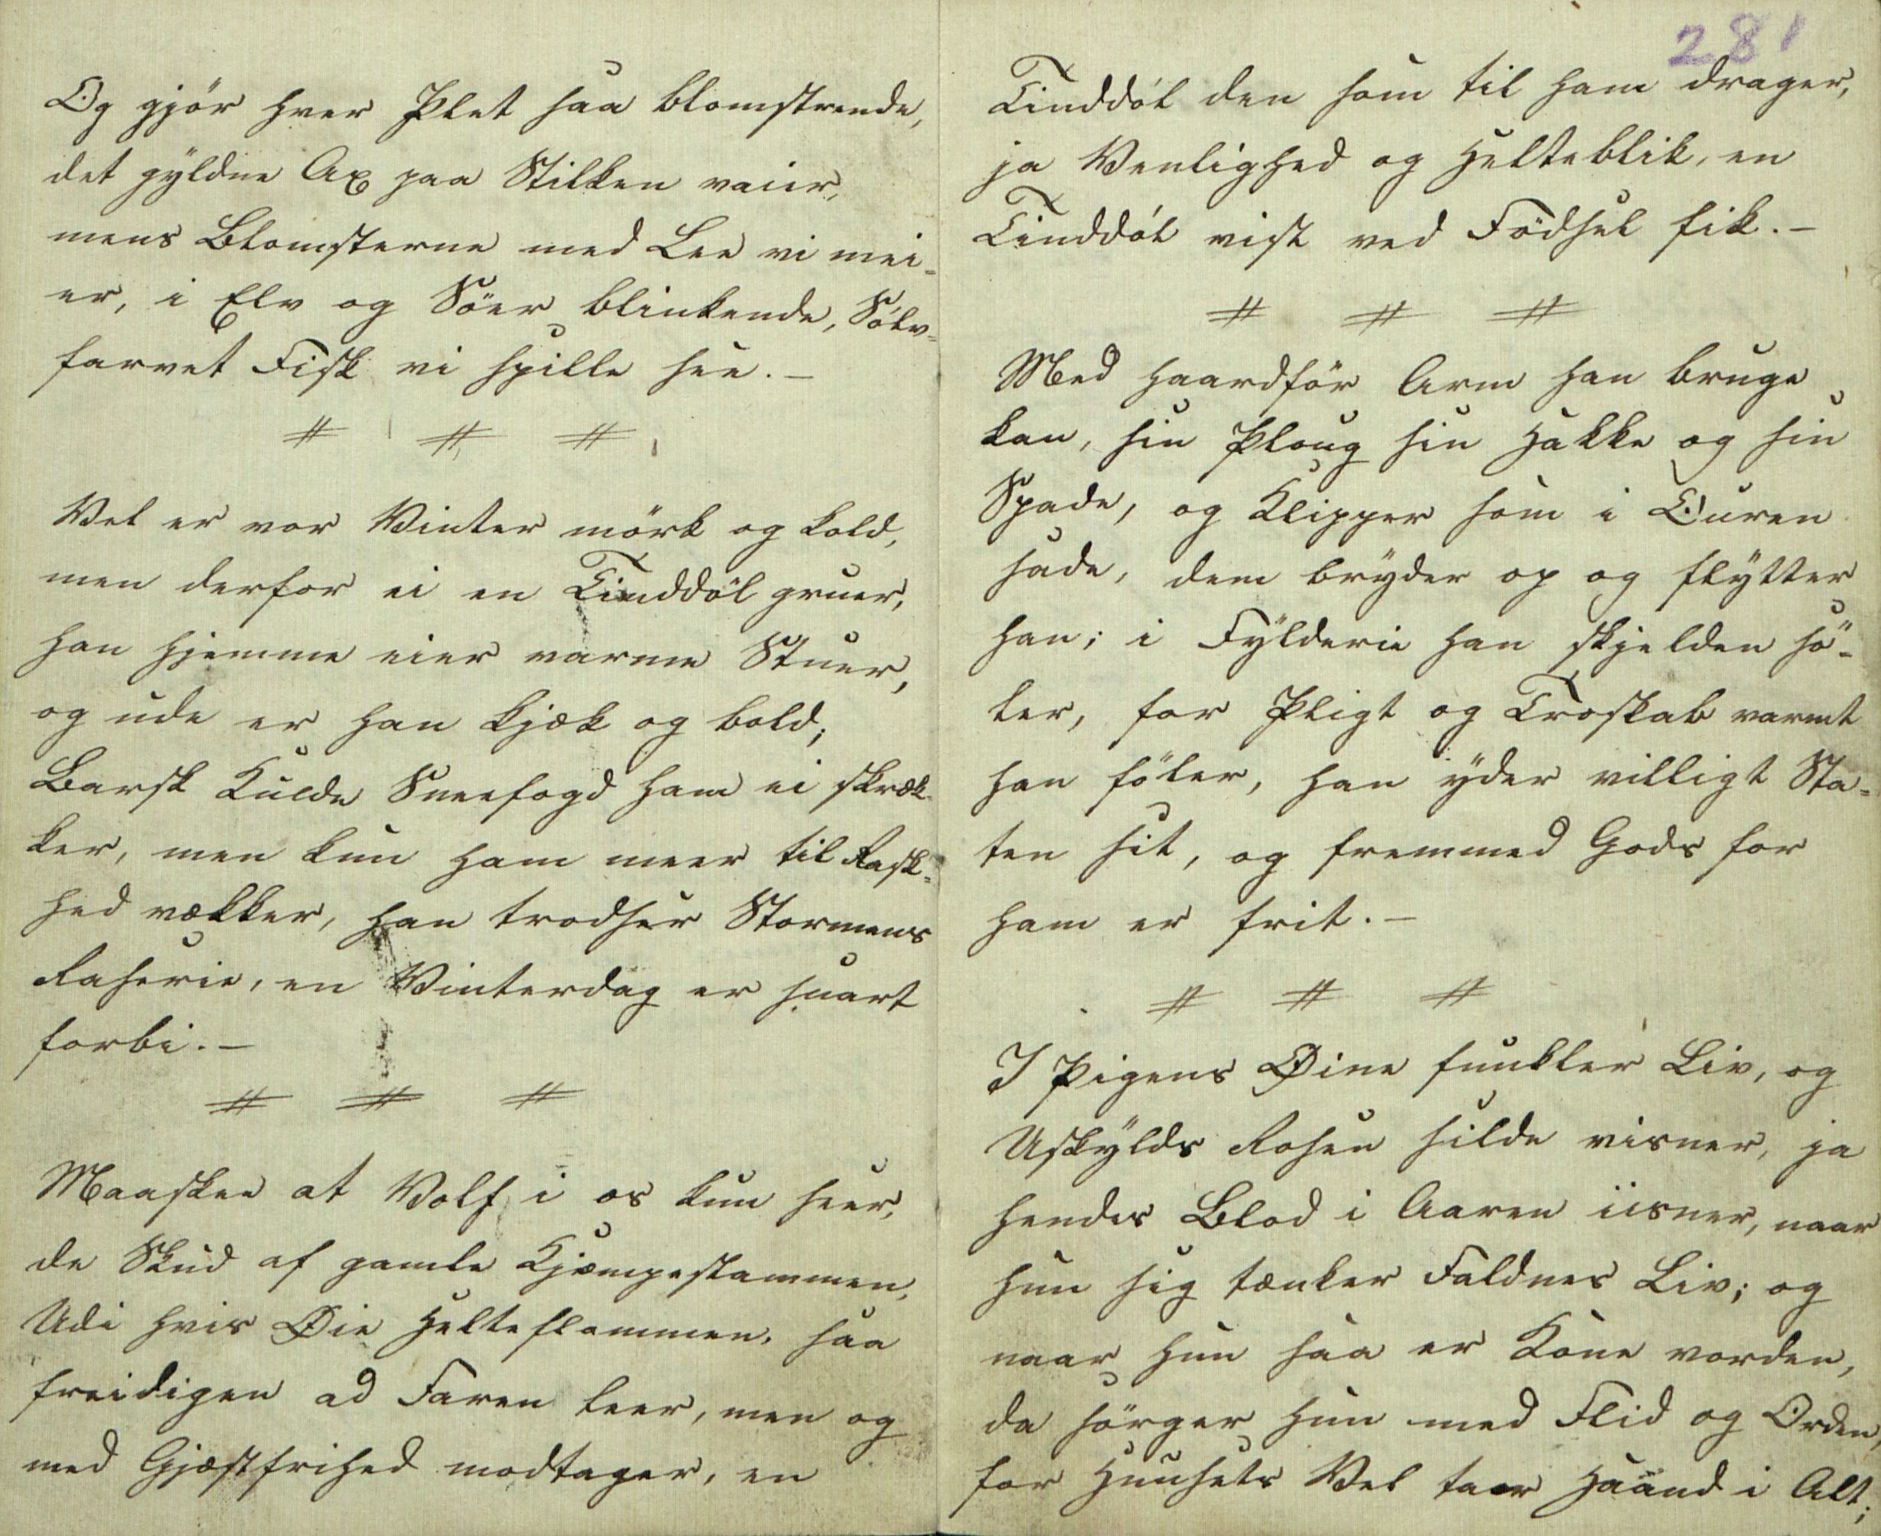 Og gjör hver Plet saa blomstrende,
det gyldne Ax paa Stilken vaier,
mens Blomsterne med Lee vi mei-
er, i Elv og Söer blinkende, Sölv-
farvet Fisk vi spille see. –
# # #
Vel er vor Vinter mörk og kold,
men derfor ei en Tinddöl gruer,
han hjemme eier varme Stuer,
og ude er han kjæk og bold;
Barsk Kulde Sneefogd ham ei skræk-
ker, men kun ham meer til Rask-
hed vækker, han trodser Stormens
Raserie, en Vinterdag er snart
forbi. –
# # #
Maaskee at Volf i os kun seer,
de Skud af gamle Kjæmpestammen,
Udi hvis Øie Helteflammen, saa
freidigen ad Faren leer, men og
med Gjæstfrihed modtager, en
281
Tinddöl den som til ham drager,
ja Venlighed og Helteblik, en
Tinddöl vist ved Födsel fik. –
# # #
Med haardför Arm han bruge
kan, sin Ploug sin Hakke og sin
Spade, og Klipper som i Ouren
sade, dem bryder op og flytter
han; i Fylderie han skjelden sö-
ler, for Pligt og Troskab varmt
han föler, han yder villigt Sta-
ten sit, og fremmed Gods for
ham er frit. –
# # #
I Pigens Øine funkler Liv, og
Uskylds Rosen silde visner, ja
hendes Blod i Aaren iisner, naar
hun sig tænker Faldnes Liv; og
naar hun saa er Kone vorden,
da sörger hun med Flid og Orden,
for Huusets Vel taer Haand i Alt;